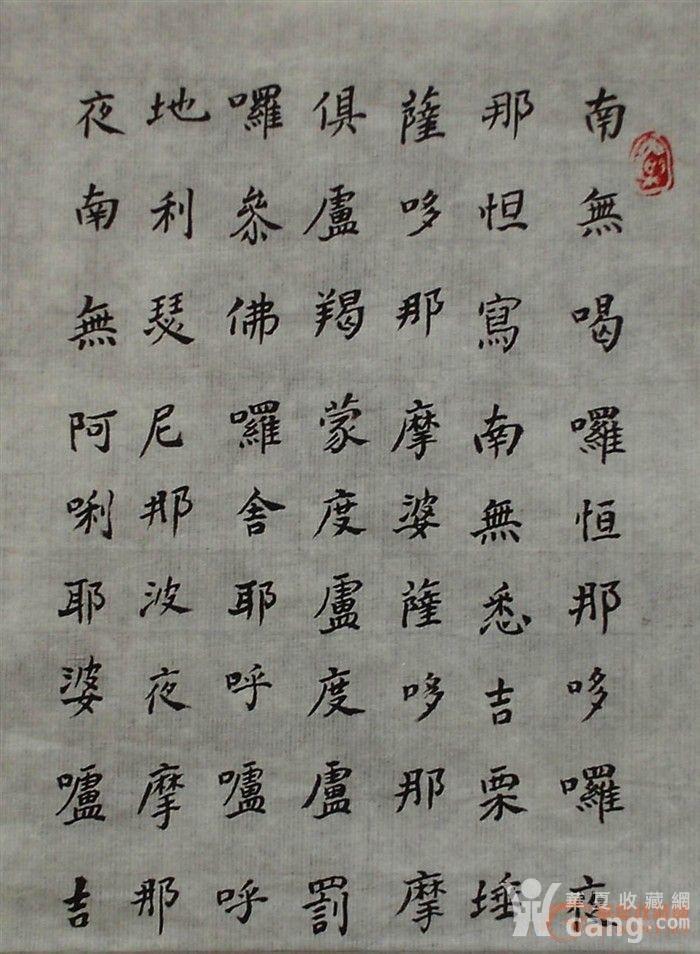 南無喝囉恒那哆囉夜
那怛寫南無悉吉栗埵
薩哆那摩婆薩哆那摩
俱盧羯蒙度盧度盧罰
囉參佛囉舍耶呼嚧呼
地利瑟尼那波夜摩那
夜南無阿唎耶婆嚧吉
華夏收藏網
dang.com